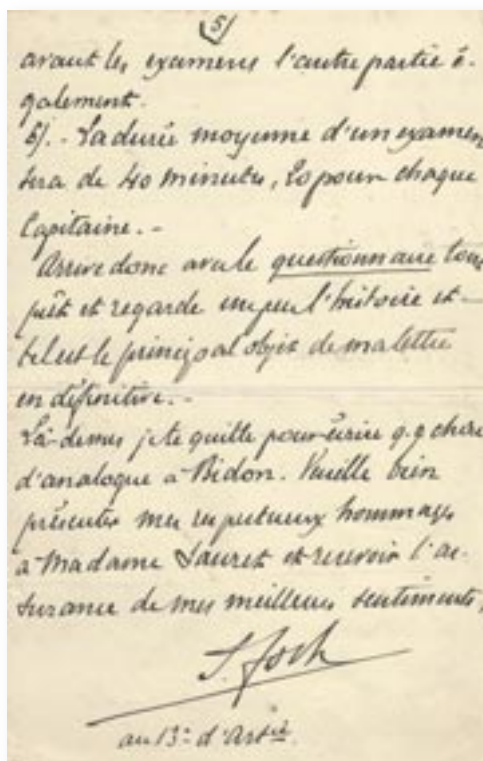 5/
avant les examens l'autre partie é-
galement.
6/. - La durée moyenne d'un examen
sera de 40 minutes, 20 pour chaque
Capitaine. -
Arrive donc avec le questionnaire tout
prêt et regarde un peu l'histoire et -
tel est le principal objet de ma lettre
en définitive. -
Là-dessus je te quitte pour écrire q.q chose
d'analogue à Bidon. Veuille bien
présenter mes respectueux hommages
à Madame Sauret et recevoir l'as-
surance de mes meilleurs sentiments,
F. Foch
au 13e d'Artie.